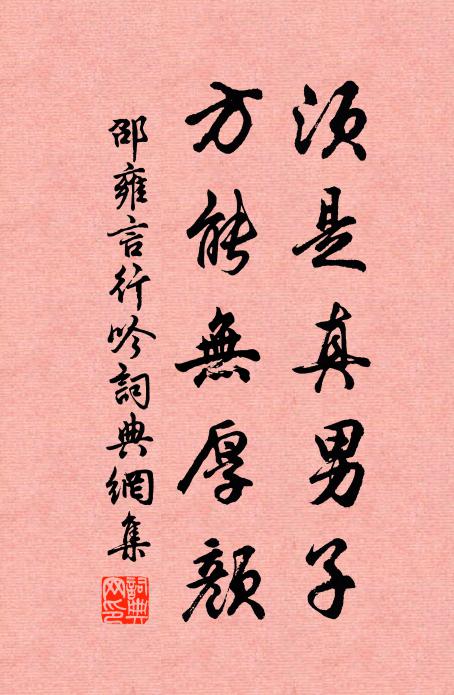 須是真男子
方能無厚顏
邵雍言行吟詞典網集
詞典
网印